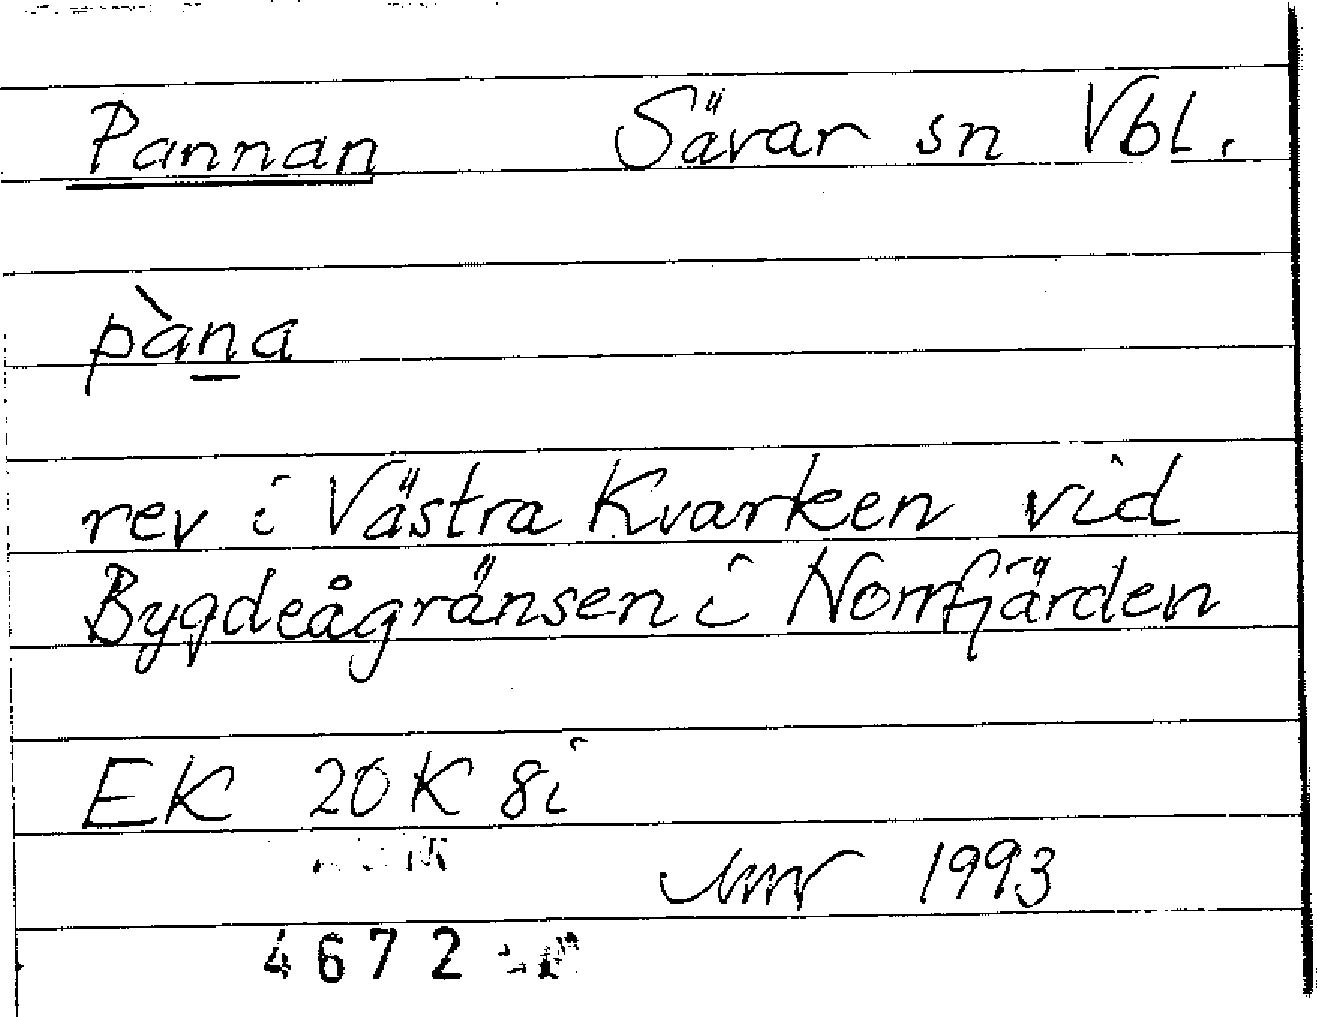 Pannan Sävar sn Vbl.
pàna
rev i Västra Kvarken vid
Bygdeågränsen i Norrfjärden
EK 20K 8i
1993
4672